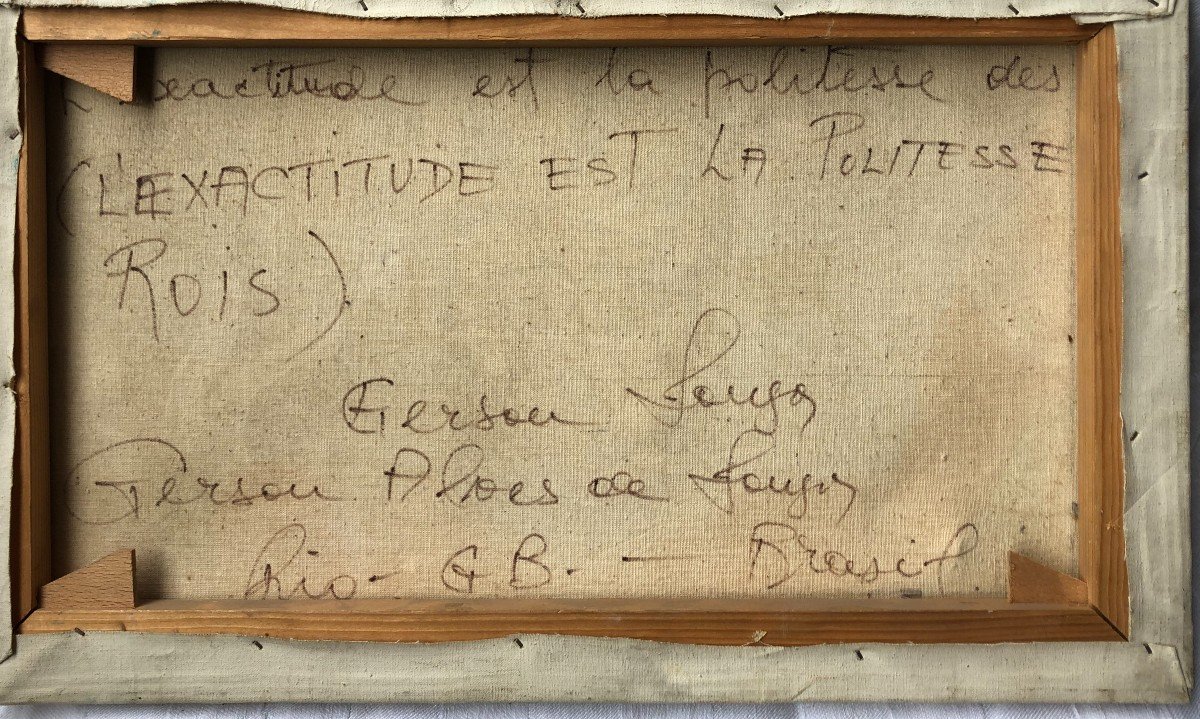 L'exactitude est la politesse des
(L'EXACTITUDE EST LA POLITESSE
ROIS)
Gerson Souza
Gerson Alves de Souza
Rio - GB. - Brasil